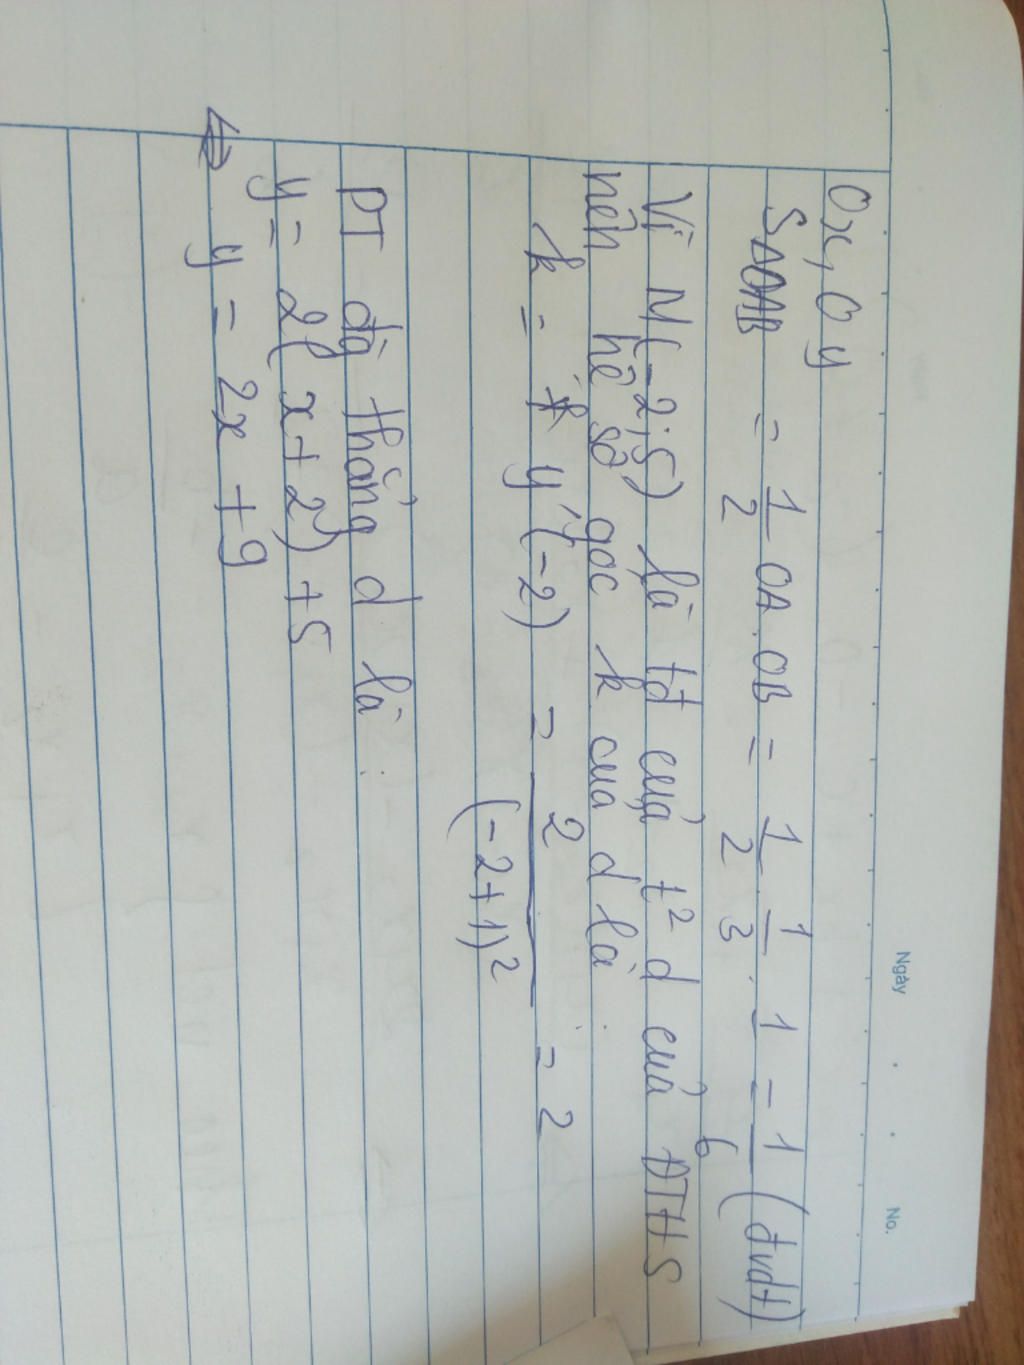 Ngày . . No.
Ox, Oy
SΔOAB = 1/2 OA. OB = 1/2 . 1/3 . 1 = 1/6 (đvdt)
Vì M(-2;5) là tđ của t² d của ĐTHS
nên hệ số góc k của d là
k = y'(-2) = 2/(-2+1)² = 2
PT đg thẳng d là
y = 2(x+2)+5
⇔ y = 2x +9